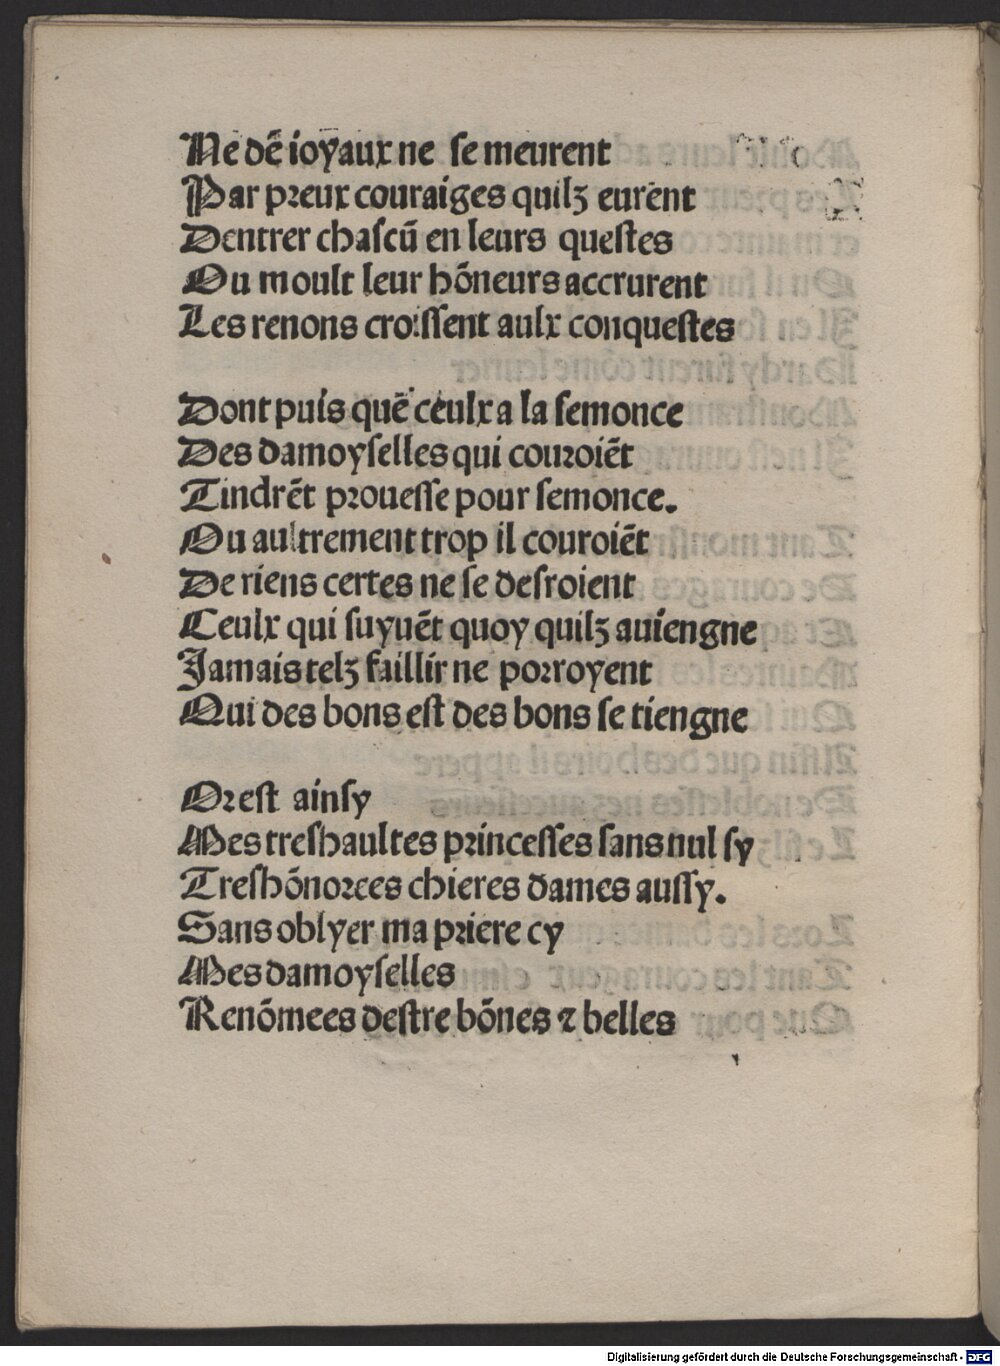 Ne dē ioyaux ne ſe meurent
Par preux couraiges quilz eurent
Dentrer chaſcū en leurs queſtes
Ou moult leur hōneurs accrurent
Les renons croiſſent aulx conqueſtes
Dont puis quē ceulx a la ſemonce
Des damoyſelles qui couroiēt
Tindrēt proueſſe pour ſemonce.
Ou aultrement trop il couroiēt
De riens certes ne ſe deſroient
Ceulx qui ſuyuēt quoy quilz auiengne
Jamais telz faillir ne porroyent
Qui des bons eſt des bons ſe tiengne
Or eſt ainſy
Mes treſhaultes princeſſes ſans nul ſy
Treſhōnorees chieres dames auſſy.
Sans oblyer ma priere cy
Mes damoyſelles
Renōmees deſtre bōnes ⁊ belles
Digitalisierung gefördert durch die Deutsche Forschungsgemeinschaft - DFG